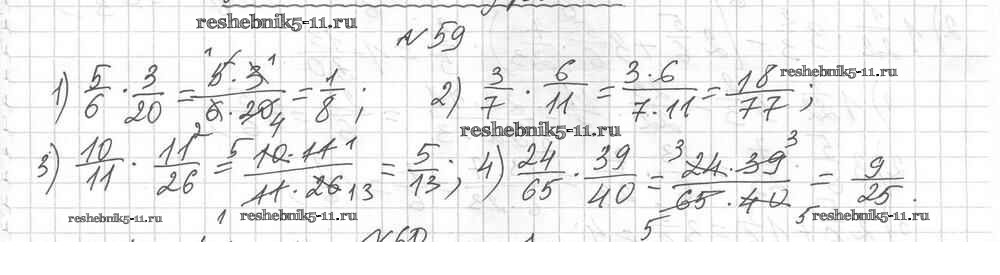 reshebnik5-11.ru
№59
1) 5/6 · 3/20 = 5·3/6·20 4 = 1/8; 2) 3/7 · 6/11 = 3·6/7·11 = 18/77;
reshebnik5-11.ru
reshebnik5-11.ru
3) 10/11 · 11/26 = 10·11/11·26 13 = 5/13; 4) 24/65 · 39/40 = 24·39/65·40 = 9/25.
reshebnik5-11.ru reshebnik5-11.ru reshebnik5-11.ru
№60